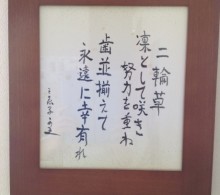 二輪草
凛として咲き
努力を重ね
歯並揃えて
永遠に幸有れ